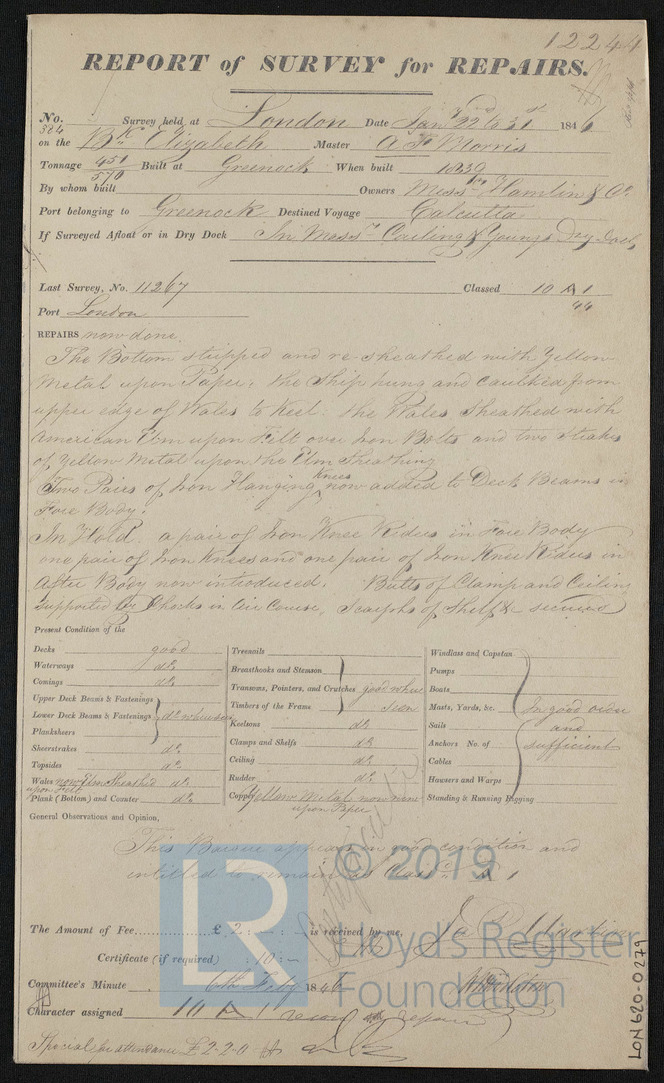 12244
REPORT of SURVEY for REPAIRS.
No. 384 Survey held at London Date Jan 22nd to 31st 1846
on the Bk Elizabeth Master A F Morris
Tonnage 451/570 Built at Greenock When built 1839
By whom built Owners Messrs Hamlin & Co.
Port belonging to Greenock Destined Voyage Calcutta
If Surveyed Afloat or in Dry Dock In Messrs Curling & Youngs Dry Dock
Last Survey, No. 11267 Classed 10 A 1
44
Port London
REPAIRS now done.
The Bottom stripped and re-sheathed with Yellow
Metal upon Paper, the Ship hung and caulked from
upper edge of Wales to Keel. the Wales Sheathed with
American Elm upon Felt over Iron Bolts and two Strakes
of Yellow Metal upon the Elm Sheathing
Two Pairs of Iron Hanging Knees now added to Deck Beams in
Fore Body.
In Hold. a pair of Iron Knee Riders in Fore Body
one pair of Iron Knees and one pair of Iron Knee Riders in
After Body now introduced. Butts of Clamp and Ceiling
Supported by Chocks in Air Course, Scarphs of Shelf & secured
Present Condition of the
Decks good
Waterways do.
Comings do.
Upper Deck Beams & Fastenings
Lower Deck Beams & Fastenings do. where seen
Planksheers
Sheerstrakes do.
Topsides do.
Wales now Elm Sheathed upon Felt do.
Plank (Bottom) and Counter do.
Treenails
Breasthooks and Stemson
Transoms, Pointers, and Crutches good where
Timbers of the Frame seen
Keelsons do.
Clamps and Shelfs do.
Ceiling do.
Rudder do.
Copper Yellow Metal now new
upon Paper
Windlass and Capstan
Pumps
Boats
Masts, Yards, &c. In good order
Sails and
Anchors No. of sufficient
Cables
Hawsers and Warps
Standing & Running Rigging
General Observations and Opinion,
This Barque appears in good condition and
entitled to remain as Class'd A 1
© 2019
LR
Lloyd's Register
Foundation
The Amount of Fee £ 2 : - : - is received by me,
Certificate (if required) : 10 : -
Committee's Minute 6th Feby 1846
Character assigned 10 A 1
Special for attendance £2-2-0
Certificate
LON 620-0279